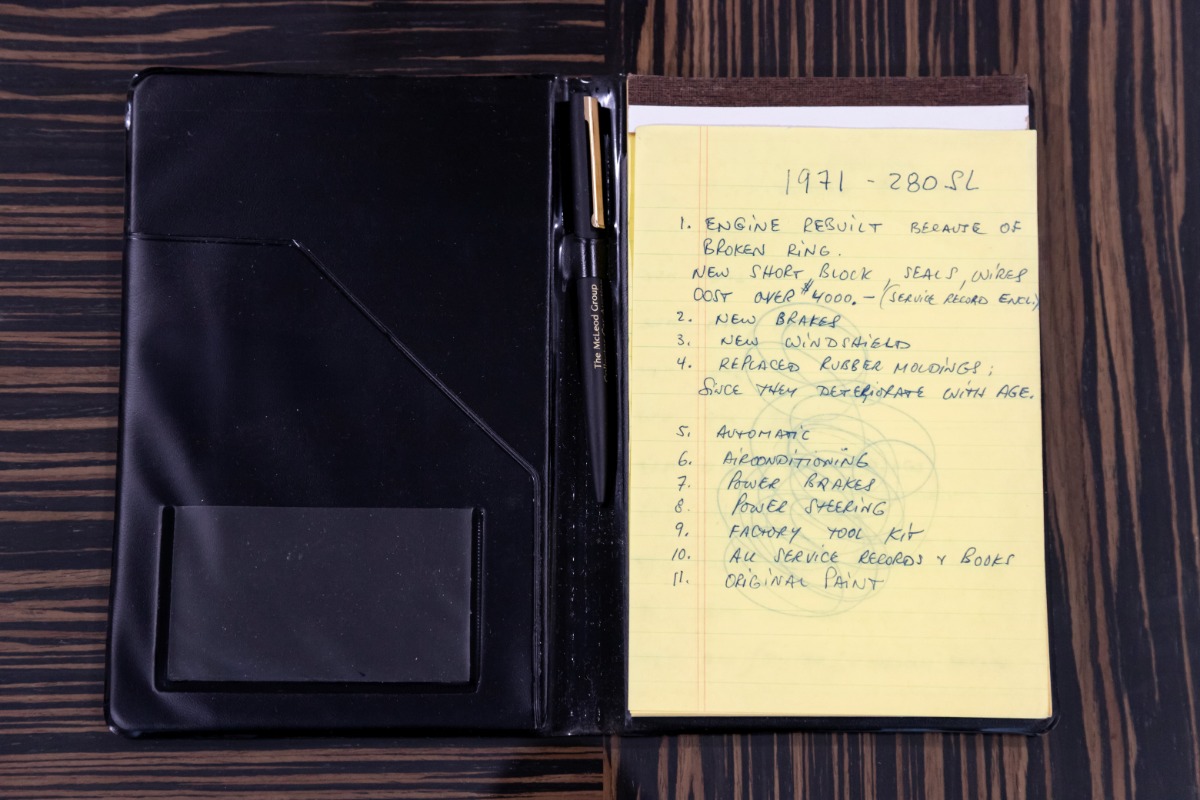 The McLeod Group
1971 - 280 SL
1. ENGINE REBUILT BECAUSE OF
BROKEN RING.
NEW SHORT BLOCK, SEALS, WIRES
COST OVER $4000.- (SERVICE RECORD ENCL.)
2. NEW BRAKES
3. NEW WINDSHIELD
4. REPLACED RUBBER MOLDINGS;
SINCE THEY DETERIORATE WITH AGE.
5. AUTOMATIC
6. AIRCONDITIONING
7. POWER BRAKES
8. POWER STEERING
9. FACTORY TOOL KIT
10. ALL SERVICE RECORDS & BOOKS
11. ORIGINAL PAINT